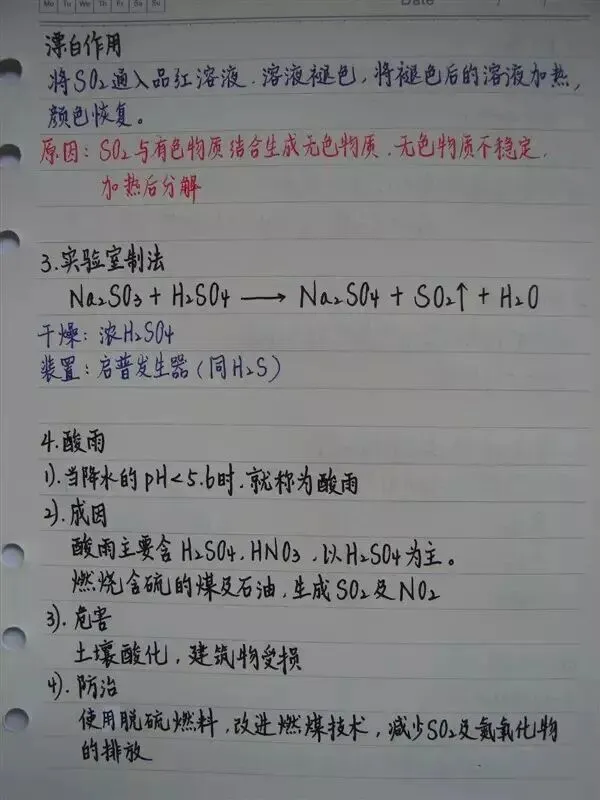 Mo Tu We Th Fr Sa Su
Date / /
漂白作用
将SO₂通入品红溶液.溶液褪色,将褪色后的溶液加热,
颜色恢复。
原因:SO₂与有色物质结合生成无色物质.无色物质不稳定.
加热后分解
3.实验室制法
Na₂SO₃ + H₂SO₄ ⟶ Na₂SO₄ + SO₂↑ + H₂O
干燥:浓H₂SO₄
装置:启普发生器(同H₂S)
4.酸雨
1).当降水的pH<5.6时.就称为酸雨
2).成因
酸雨主要含H₂SO₄,HNO₃,以H₂SO₄为主。
燃烧含硫的煤及石油,生成SO₂及NO₂
3).危害
土壤酸化,建筑物受损
4).防治
使用脱硫燃料,改进燃煤技术,减少SO₂及氮氧化物
的排放